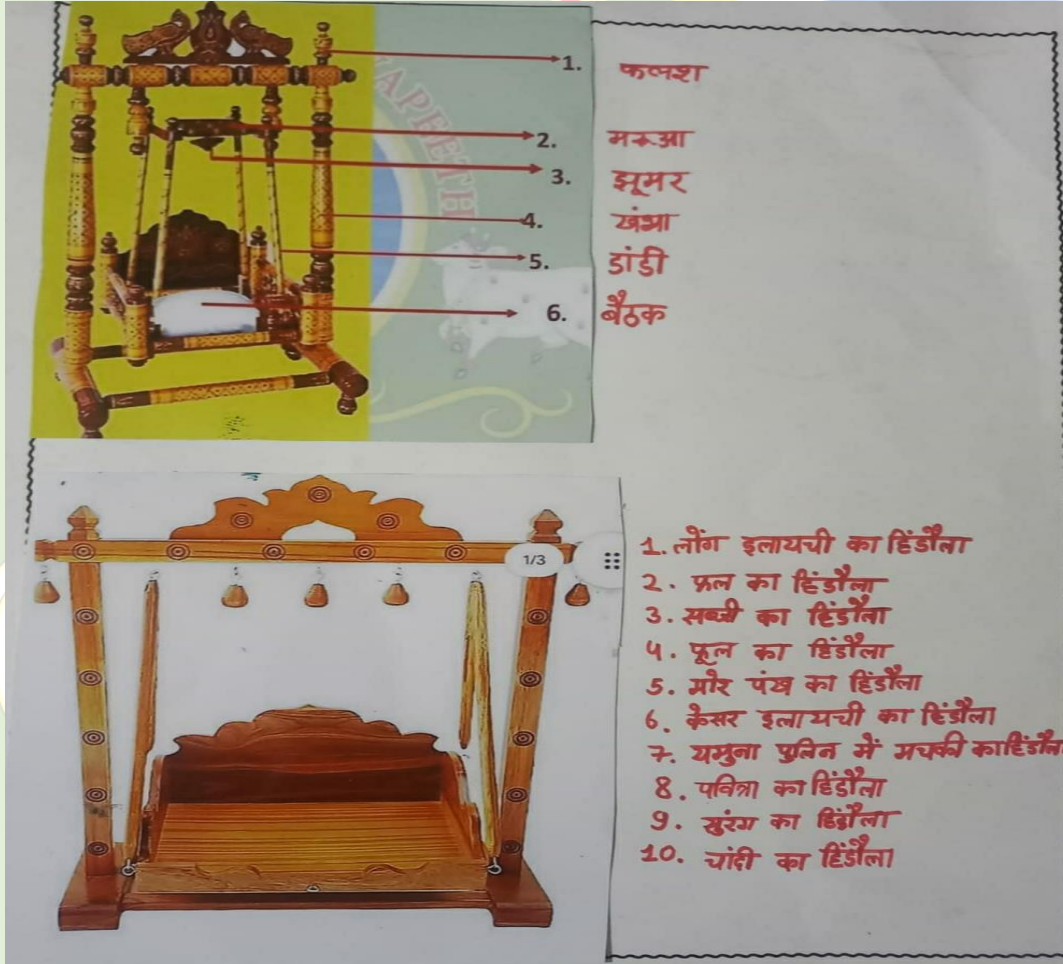 1. कलश
2. मरुआ
3. झूमर
4. खंभा
5. डांडी
6. बैठक
APEETH
1/3
1. लोंग इलायची का हिंडौला
2. फल का हिंडौला
3. सब्जी का हिंडौला
4. फूल का हिंडौला
5. मोर पंख का हिंडौला
6. केसर इलायची का हिंडौला
7. यमुना पुलिन में मचकी का हिंडौला
8. पवित्रा का हिंडौला
9. सुरंग का हिंडौला
10. चांदी का हिंडौला